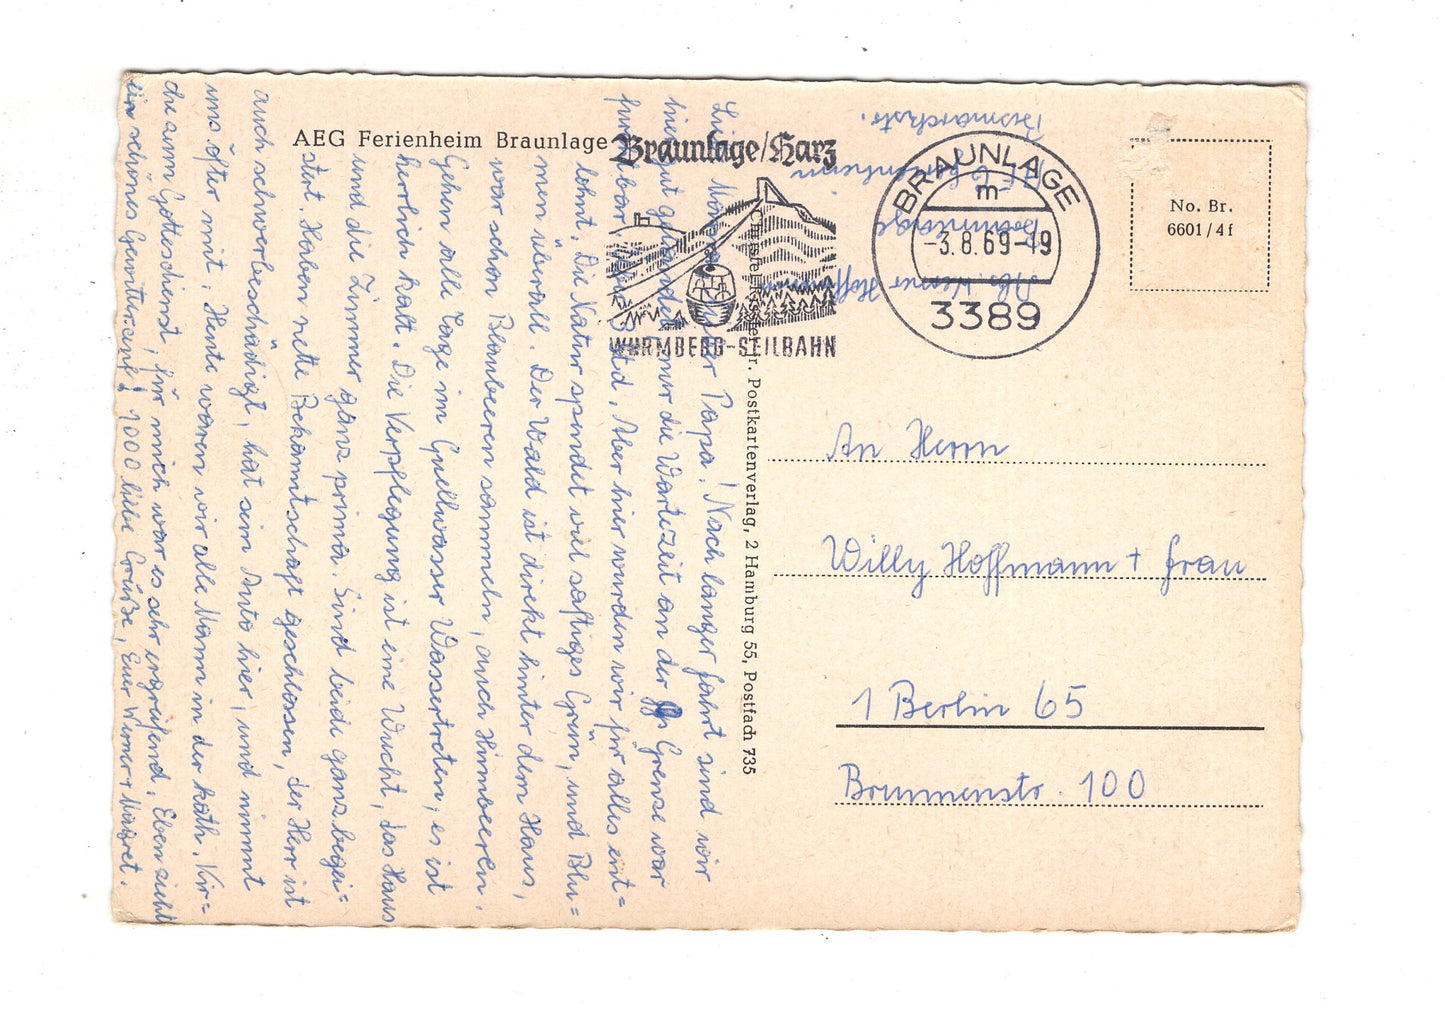 AEG Ferienheim Braunlage
Braunlage/Harz
WURMBERG-SEILBAHN
BRAUNLAGE
m
-3.8.69-19
3389
No. Br.
6601/4f
Abs. Werner Hoffmann
Braunlage
AEG Ferienheim
Bismarckstr.
Postkartenverlag, 2 Hamburg 55, Postfach 735
An Herrn
Willy Hoffmann + Frau
1 Berlin 65
Brunnenstr. 100
Papa! Nach langer Fahrt sind wir
hier gut gelandet, nur die Wartezeit an der Grenze war
furchtbar Aber hier wurden wir für alles ent=
lohnt. Die Natur spendet viel saftiges Grün, und Blu=
men überall. Der Wald ist direkt hinter dem Haus,
war schon Blaubeeren sammeln, auch Himbeeren.
Gehen alle Tage im Quellwasser Wassertreten, es ist
herrlich kalt. Die Verpflegung ist eine Wucht, das Haus
und die Zimmer ganz prima. Sind beide ganz begei=
stert. Haben nette Bekanntschaft geschlossen, der Herr ist
auch schwerbeschädigt, hat sein Auto hier, und nimmt
uns öfter mit. Heute waren wir alle Mann in der kath. Kir=
che zum Gottesdienst, für mich war es sehr ergreifend. Eben zieht
ein schönes Gewitter auf! 1000 liebe Grüße, Euer Werner + Margret.